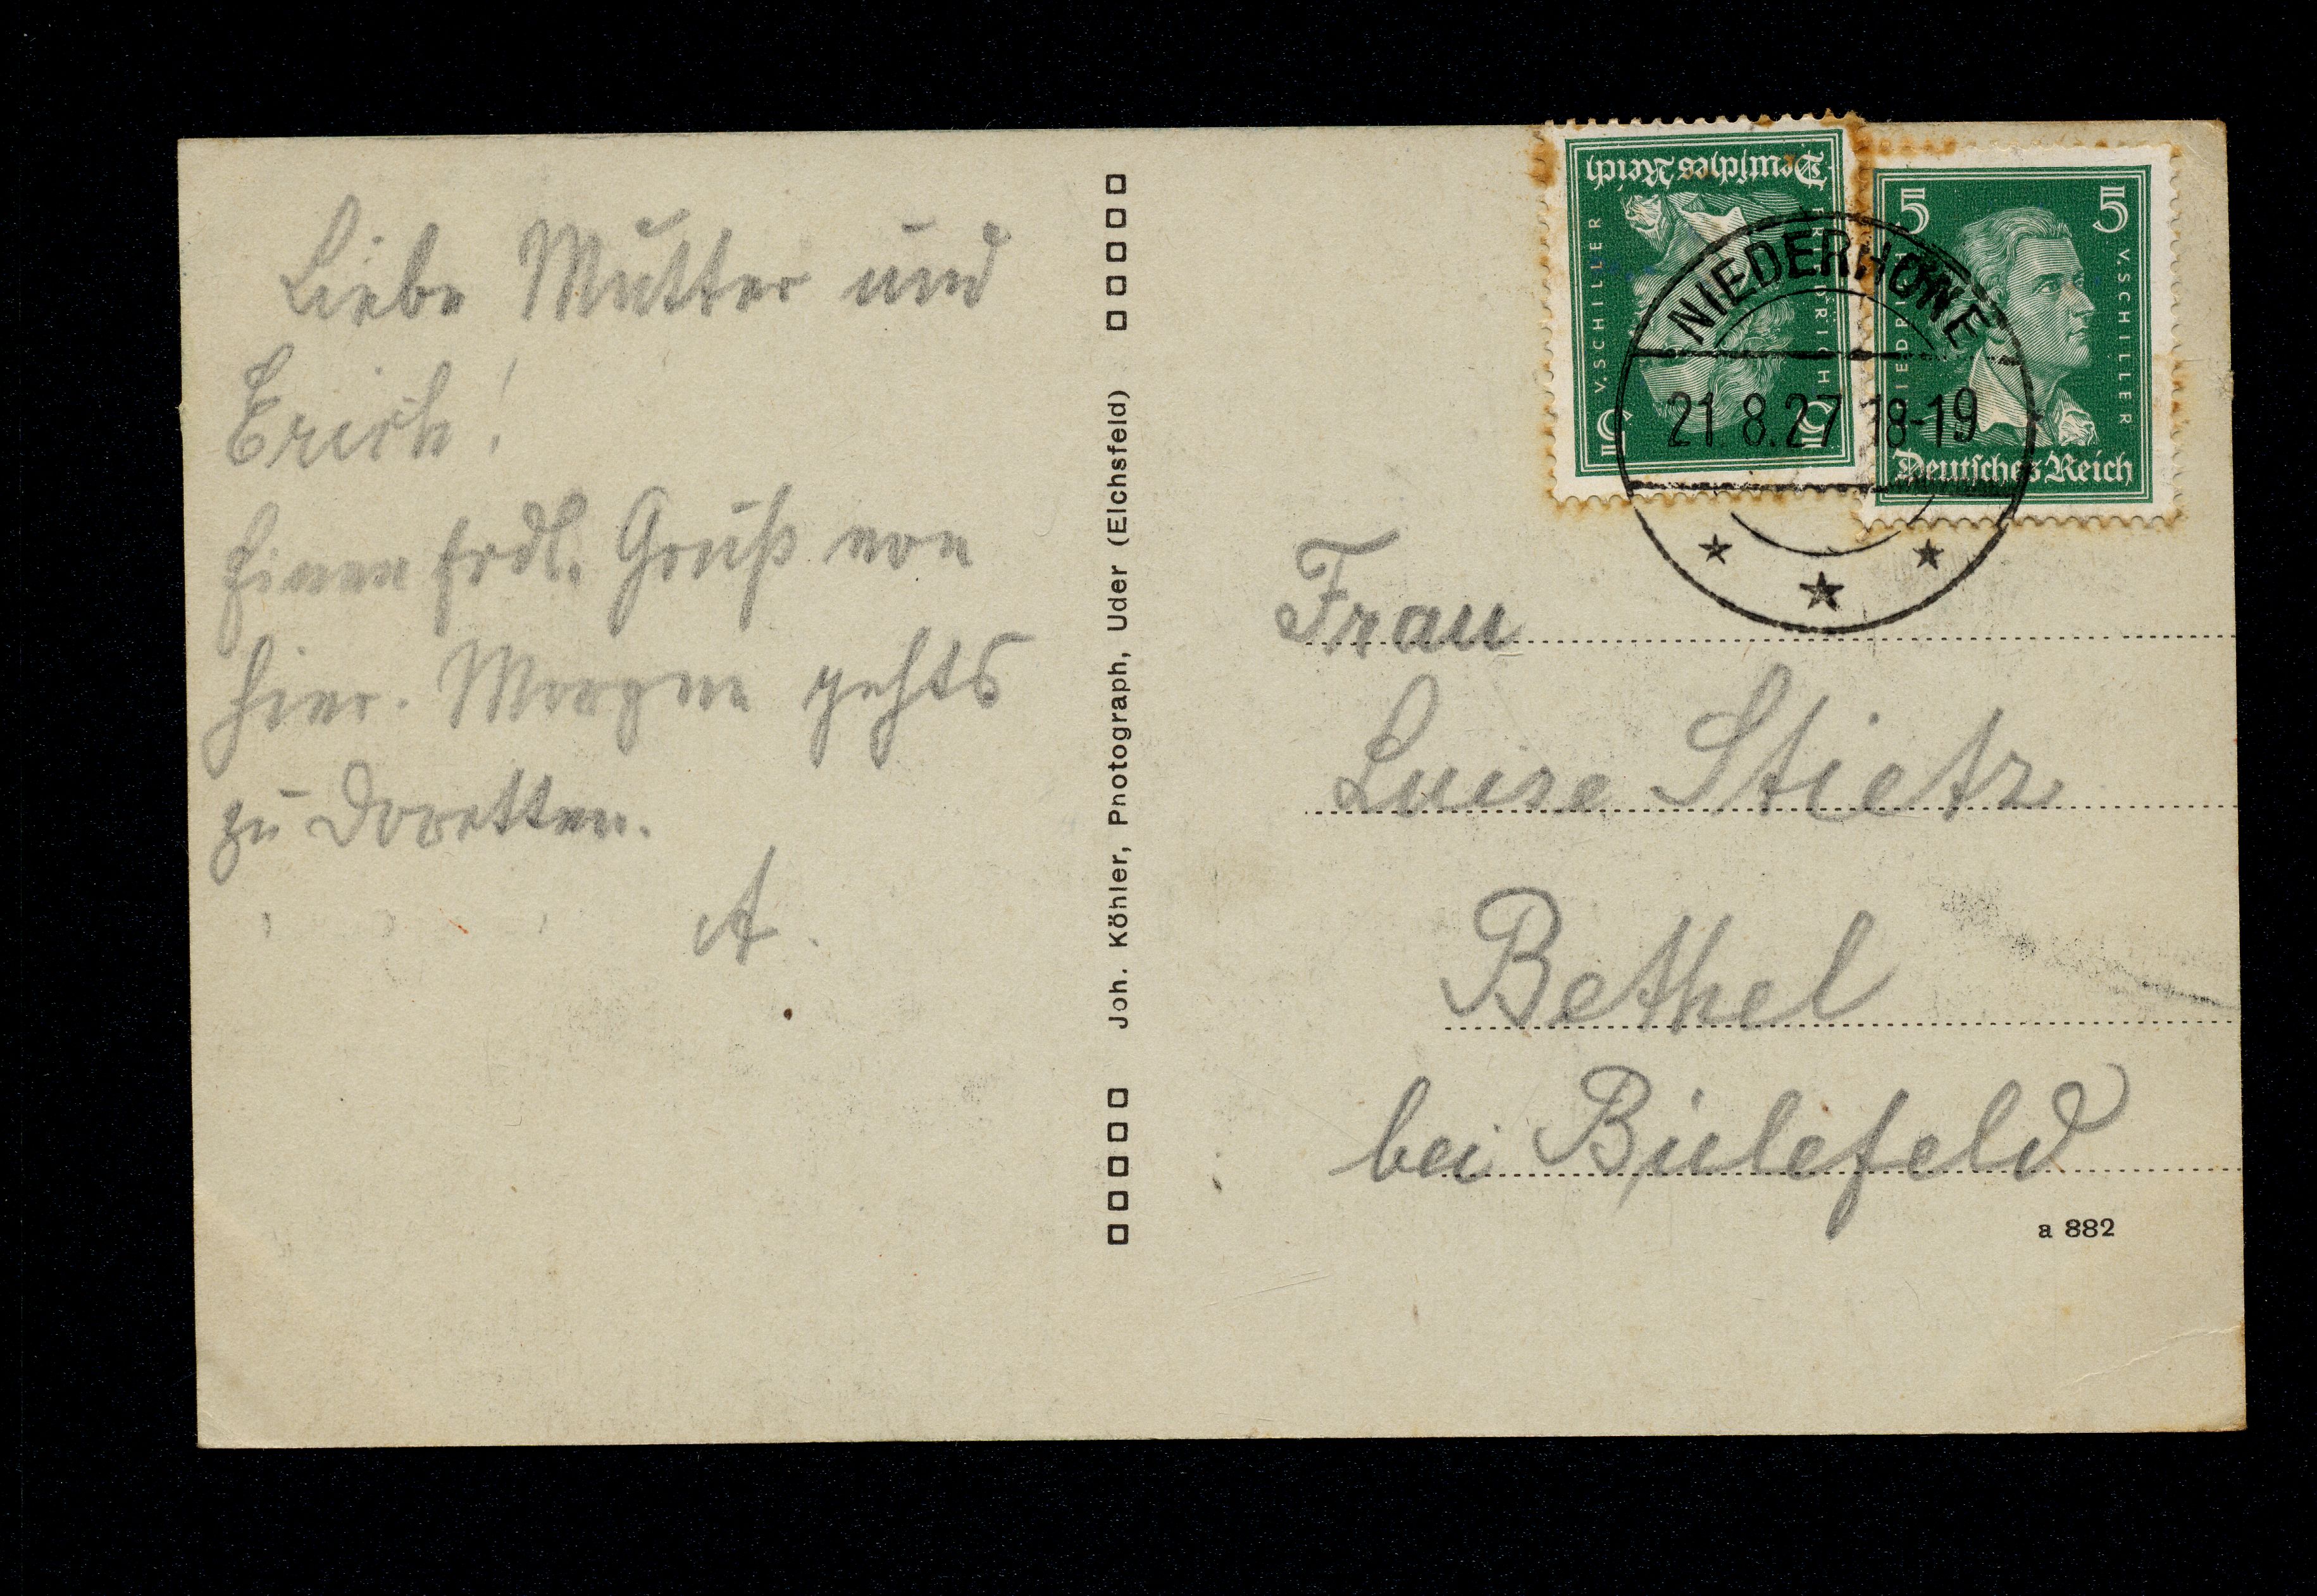 Liebe Mutter und
Erich!
Einen frdl. Gruß von
hier. Morgen gehts
zu Doretten.
A.
Joh. Köhler, Photograph, Uder (Eichsfeld)
Deutsches Reich
FRIEDRICH V. SCHILLER
5 5
5 5
FRIEDRICH V. SCHILLER
Deutsches Reich
NIEDERHONE
21.8.27 18-19
Frau
Luise Stietz
Bethel
bei Bielefeld
a 882